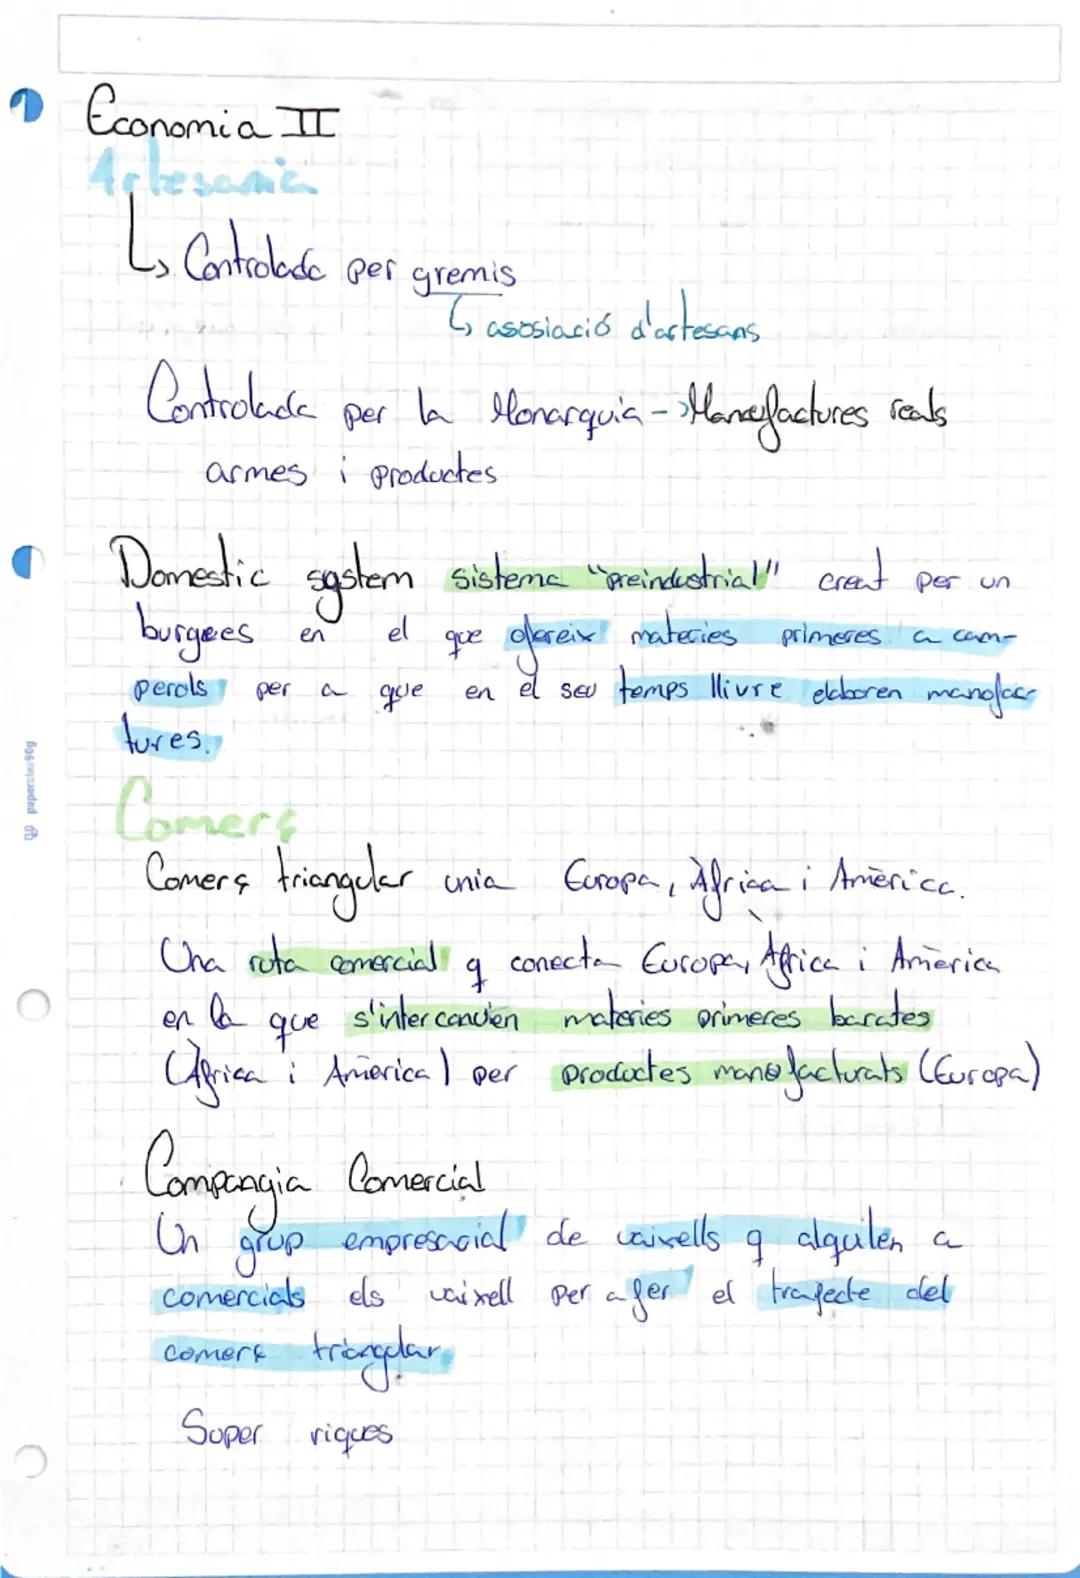 Economia II
Artesania
↳ Controlada per gremis
↳ asosiació d'artesans
Controlada per la Monarquia -> Manufactures reals
armes i productes
Domestic system sistema "preindustrial" creat per un
burgees en el que ofereix materies primeres a cam-
perols per a que en el seu temps llivre elaboren manofac-
tures.
Comerç
Comerç triangular unia Europa, Àfrica i Amèrica.
Una ruta comercial q conecta Europa, Àfrica i Amèrica
en la que s'intercanvien materies primeres barates
(Àfrica i Amèrica) per productes manofacturats (Europa)
Compangia Comercial
Un grup empresarial de vaixells q alquilen a
comercials els vaixell per a fer el trajecte del
comerç triangular.
Super riques